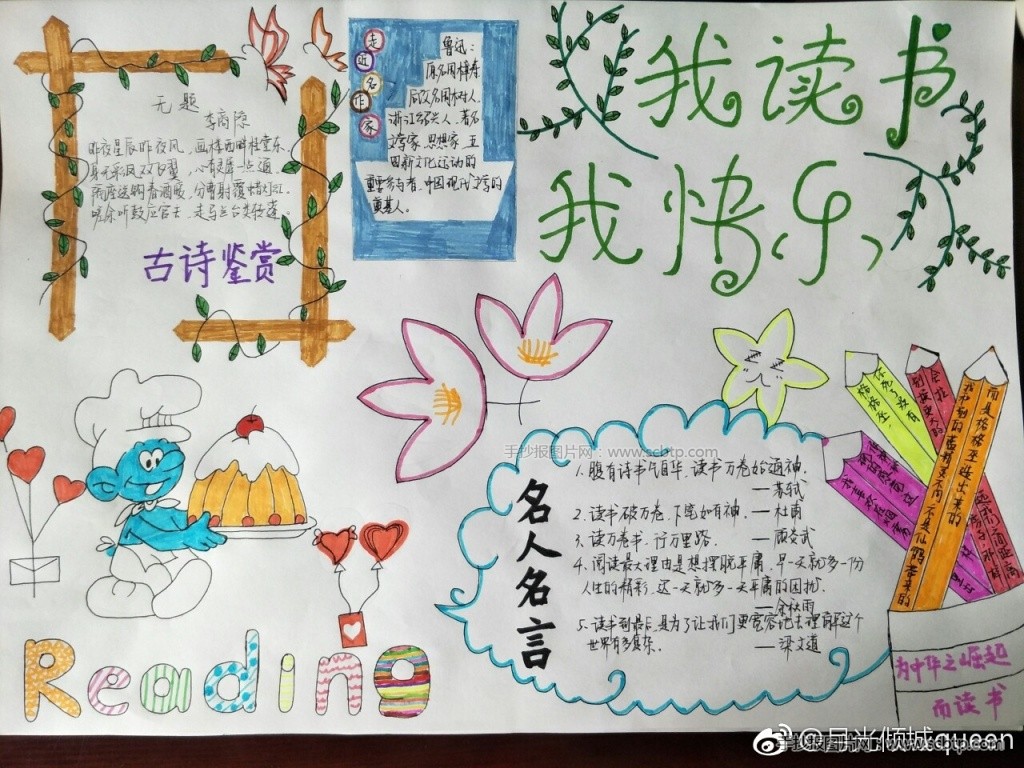 我读书
我快乐
无题
李商隐
昨夜星辰昨夜风,画楼西畔桂堂东.
身无彩凤双飞翼,心有灵犀一点通.
隔座送钩春酒暖,分曹射覆蜡灯红.
嗟余听鼓应官去,走马兰台类转蓬.
古诗鉴赏
走近名作家
鲁迅:
原名周樟寿
后改名周树人.
浙江绍兴人.著名
文学家.思想家.五
四新文化运动的
重要参与者.中国现代文学的
奠基人.
手抄报图片网:www.scbtp.com
名人名言
1.腹有诗书气自华.读书万卷始通神.
—苏轼
2.读书破万卷.下笔如有神.—杜甫
3.读万卷书.行万里路.—顾炎武
4.阅读最大理由是想摆脱平庸.早一天就多一份
人生的精彩.迟一天就多一天平庸的困扰.
—余秋雨
5.读书到最后.是为了让我们更宽容地去理解这个
世界有多复杂.—梁文道
你死了没有
格格巫.
为中华之崛起
而读书
Reading
手抄报图片网:www.scbtp.com
@月光倾城queen